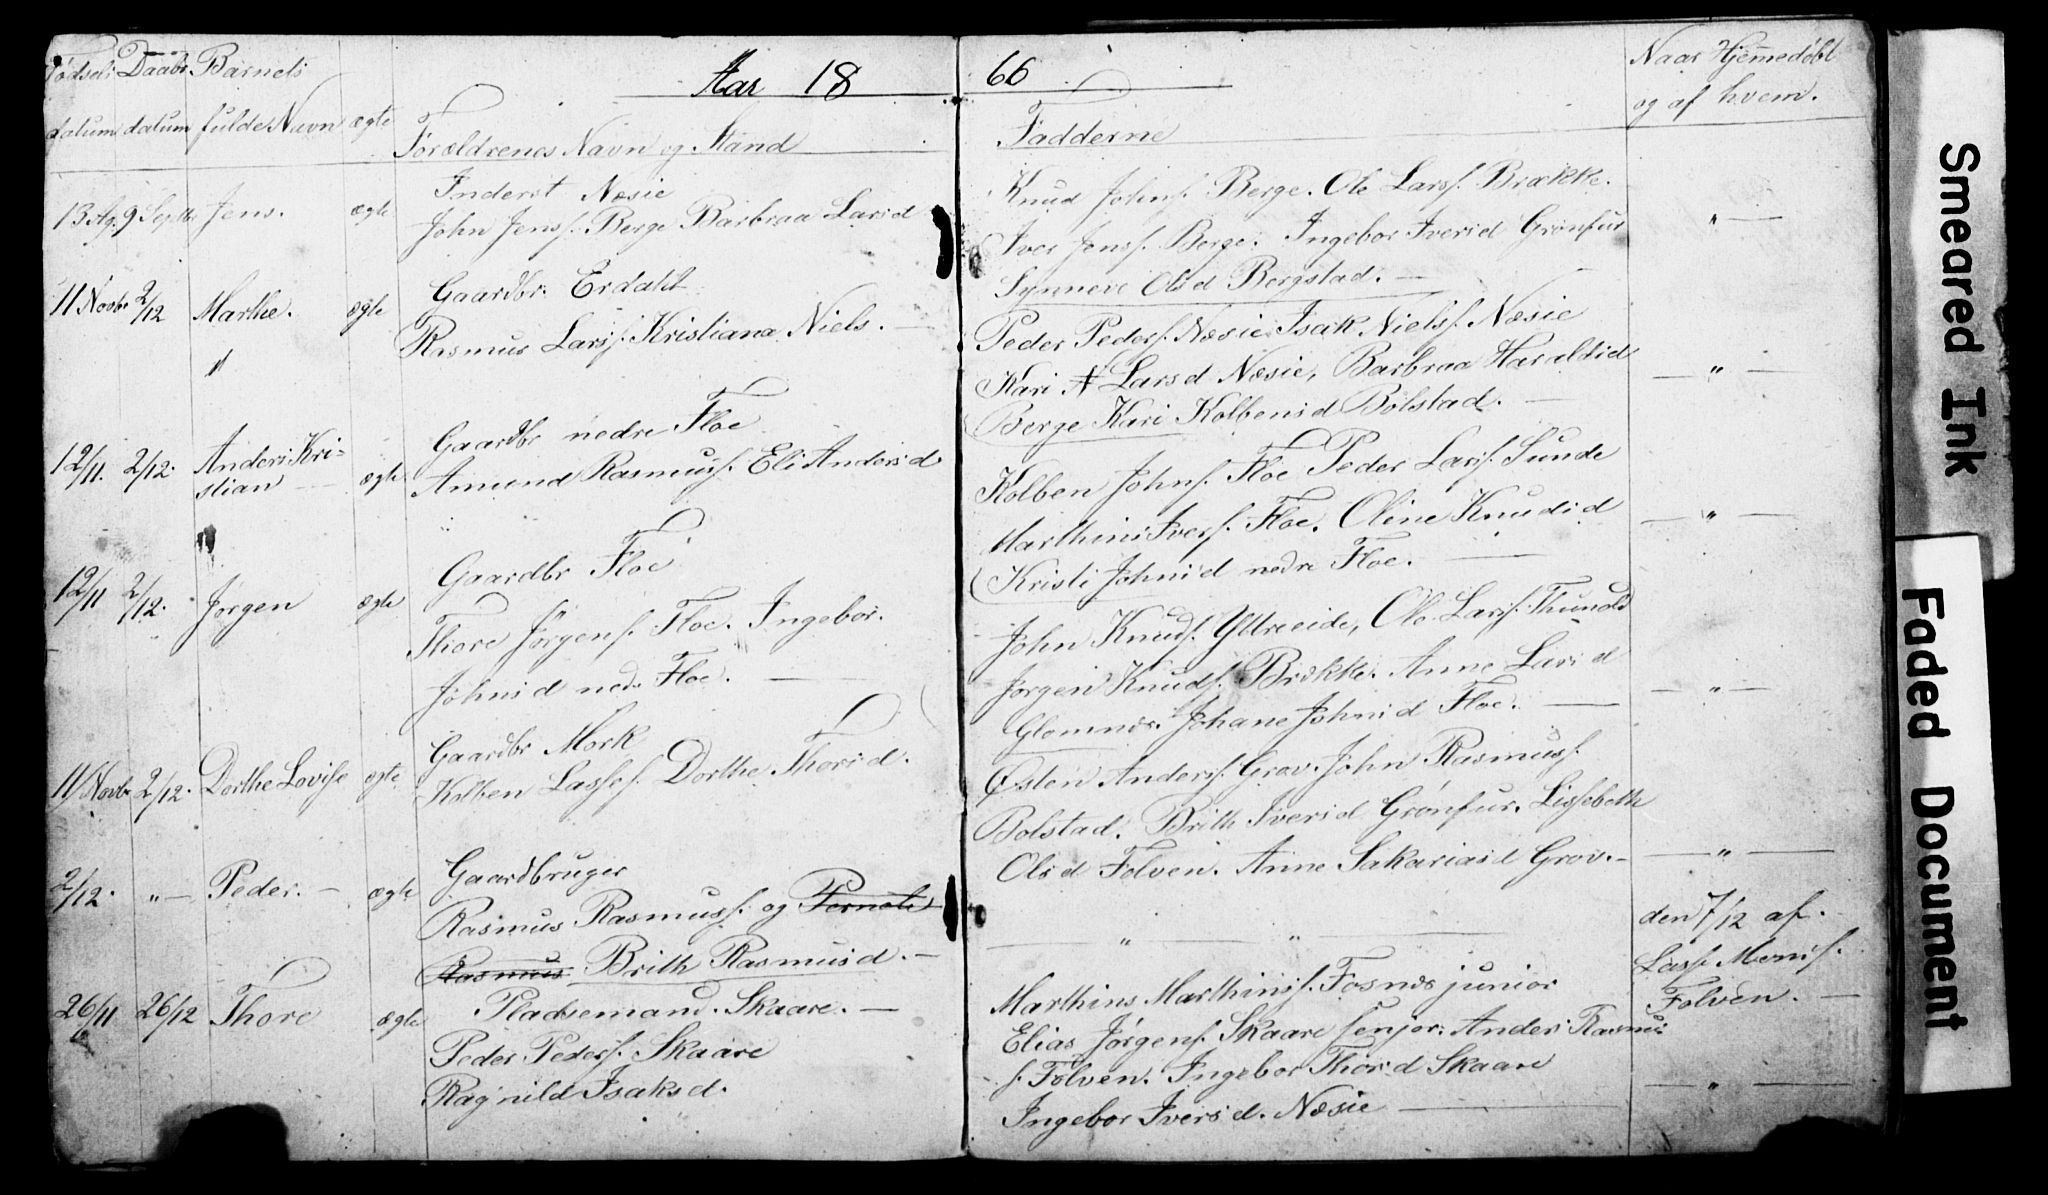 Aar 18 66
Fødsels Daabs Barnets
datum datum fulde Navn ægte
Forældrenes Navn og Stand
Fadderne
Naar Hjemmedøbt
og af hvem.
Inderst Næsie
13 Ag. 9 Septb Jens. ægte John Jenss. Berge Barbraa Larsd
Knud Johns. Berge. Ole Larss. Brække.
Iver Jenss. Berge. Ingebor Iversd Grønfur " —
Synneve Olsd Bergstad. —
Gaardbr. Erdahl
11 Novbr 2/12 Marthe. ægte Rasmus Larss. Kristiana Niels. —
"
Peder Peders. Næsie Isak Nielss. Næsie
Kari Larsd Næsie, Barbraa Haraldsd — " —
Berge Kari Kolbensd Bolstad. —
Gaardbr nedre Floe
12/11. 2/12. Anders Kri=
stian — ægte Amund Rasmuss. Eli Andersd
Kolben Johns. Floe Peder Larss. Sunde
Marthins Ivers. Floe. Oline Knudsd — " —
Kristi Johnsd nedre Floe. —
Gaardbr Floe
12/11 2/12. Jørgen ægte Thore Jørgens. Floe. Ingebor.
Johnsd nedr Floe. —
John Knuds. Yttreeide, Ole Larss. Thunold
Jørgen Knuds. Brække. Anne Larsd — " —
Glomnes. Johane Johnsd Floe. —
Gaardbr Mork
11/Novb 2/12. Dorthe Lovise ægte Kolben Lasses. Dorthe Thorsd.
Østen Anderss. Grov. John Rasmuss.
Bolstad. Brith Iversd Grønfur. Lissebeth
Olsd Folven. Anne Sakariasd Grov. — — " —
Gaardbruger
2/12. " — Peder. — ægte Rasmus Rasmuss. og Pernele
Rasmus Brith Rasmusd. —
— " — " —
den 7/12 af.
Lass. Mons.
Folven. —
Pladsemand. Skaare. —
26/11 26/12 Thore ægte Peder Peders. Skaare
Ragnild Isaksd.
Marthins Marthins. Fosnes junior
Elias Jørgens. Skaare senjor. Anders Rasmu=
s. Folven. Ingebor Thorsd Skaare — " —
Ingebor Iversd. Næsie —
Smeared Ink
Faded Document